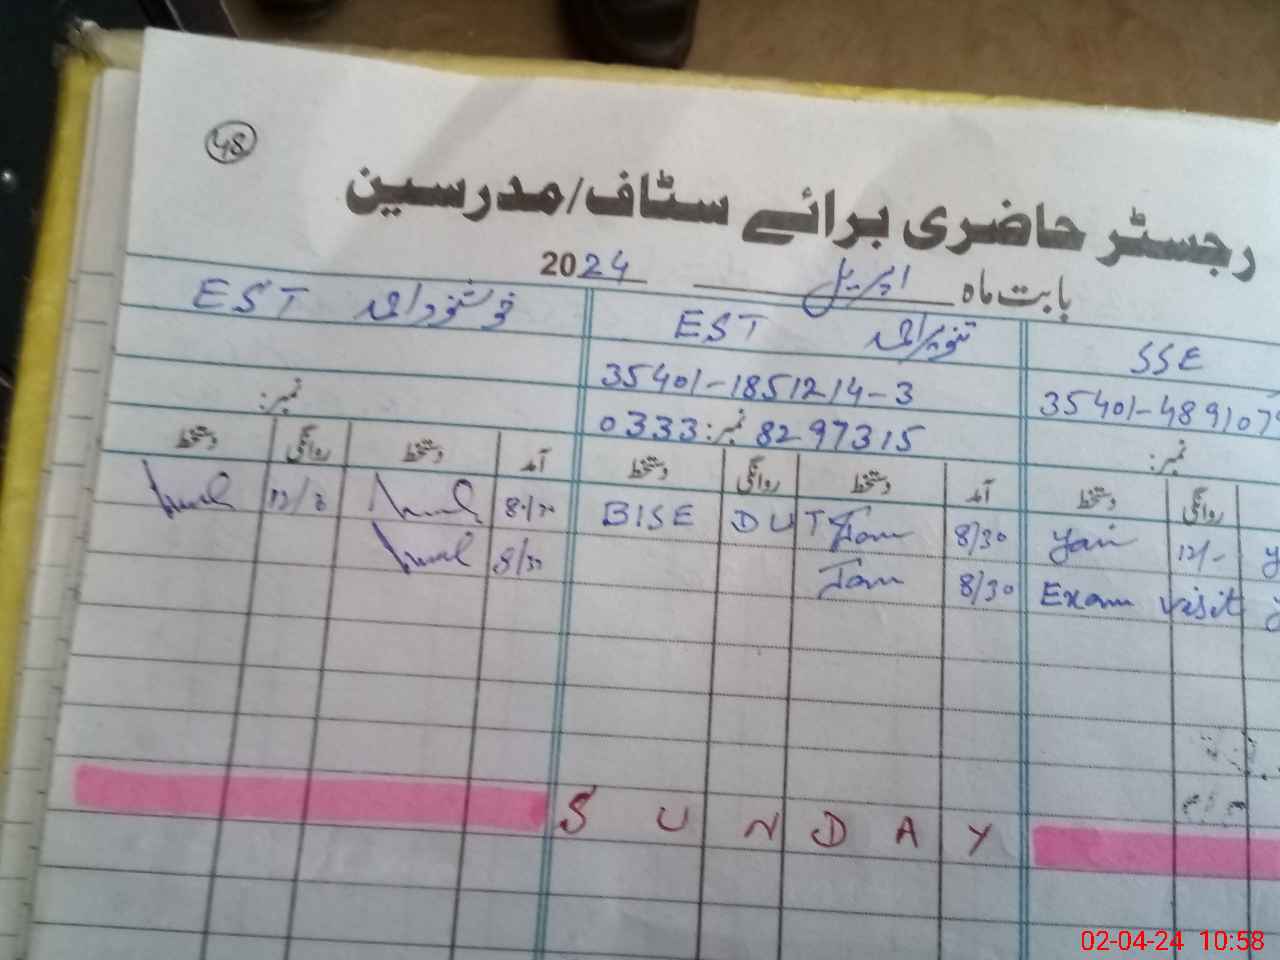 48
رجسٹر حاضری برائے سٹاف/مدرسین
بابت ماہ اپریل 2024
SSE تنخواہ EST EST
35401-1851214-3
35401-489107
نمبر: 0333:نمبر 8297315 نمبر:
دستخط روانگی آمد دستخط روانگی دستخط آمد دستخط روانگی دستخط
8/30 BISE DUT 8/30 12/-
8/30 8/30 Exam visit
SUNDAY
02-04-24 10:58